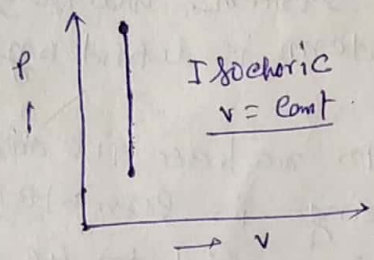 P
Isochoric
v = Const
v